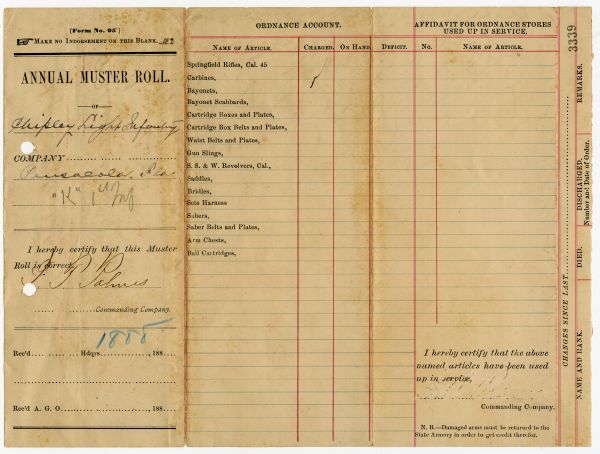 [Form No. 95]
MAKE NO INDORSEMENT ON THIS BLANK.
ANNUAL MUSTER ROLL.
—OF—
Chipley Light Infantry
COMPANY
Pensacola, Fla
"K" 1st Inf
I hereby certify that this Muster
Roll is correct.
Commanding Company.
1885
Rec'd Hdqrs. 188
Rec'd A. G. O. 188
ORDNANCE ACCOUNT.
NAME OF ARTICLE. CHARGED. ON HAND. DEFICIT.
Springfield Rifles, Cal. 45
Carbines,
Bayonets,
Bayonet Scabbards,
Cartridge Boxes and Plates,
Cartridge Box Belts and Plates,
Waist Belts and Plates,
Gun Slings,
S. S. & W. Revolvers, Cal.,
Saddles,
Bridles,
Sets Harness
Sabers,
Saber Belts and Plates,
Arm Chests,
Ball Cartridges,
AFFIDAVIT FOR ORDNANCE STORES
USED UP IN SERVICE.
No. NAME OF ARTICLE.
I hereby certify that the above
named articles have been used
up in service,
Commanding Company.
N. B.—Damaged arms must be returned to the
State Armory in order to get credit therefor.
3339
CHANGES SINCE LAST
NAME AND RANK. DIED. DISCHARGED. REMARKS.
Number and Date of Order.